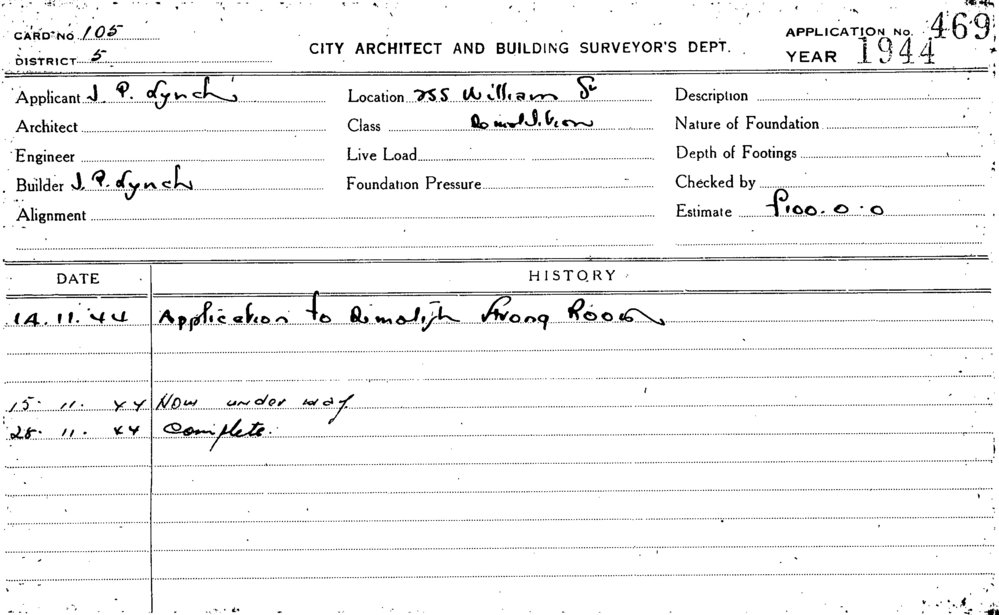 CARD No 105
DISTRICT 5
CITY ARCHITECT AND BUILDING SURVEYOR'S DEPT.
APPLICATION No. 469
YEAR 1944
Applicant J. P. Lynch
Location 255 William St
Description
Architect
Class Demolition
Nature of Foundation
Engineer
Live Load
Depth of Footings
Builder J. P. Lynch
Foundation Pressure
Checked by
Alignment
Estimate £100.0.0
DATE
HISTORY
14.11.44 Application to Dimolish Strong Room
15.11.44 Now under way.
28.11.44 Complete.